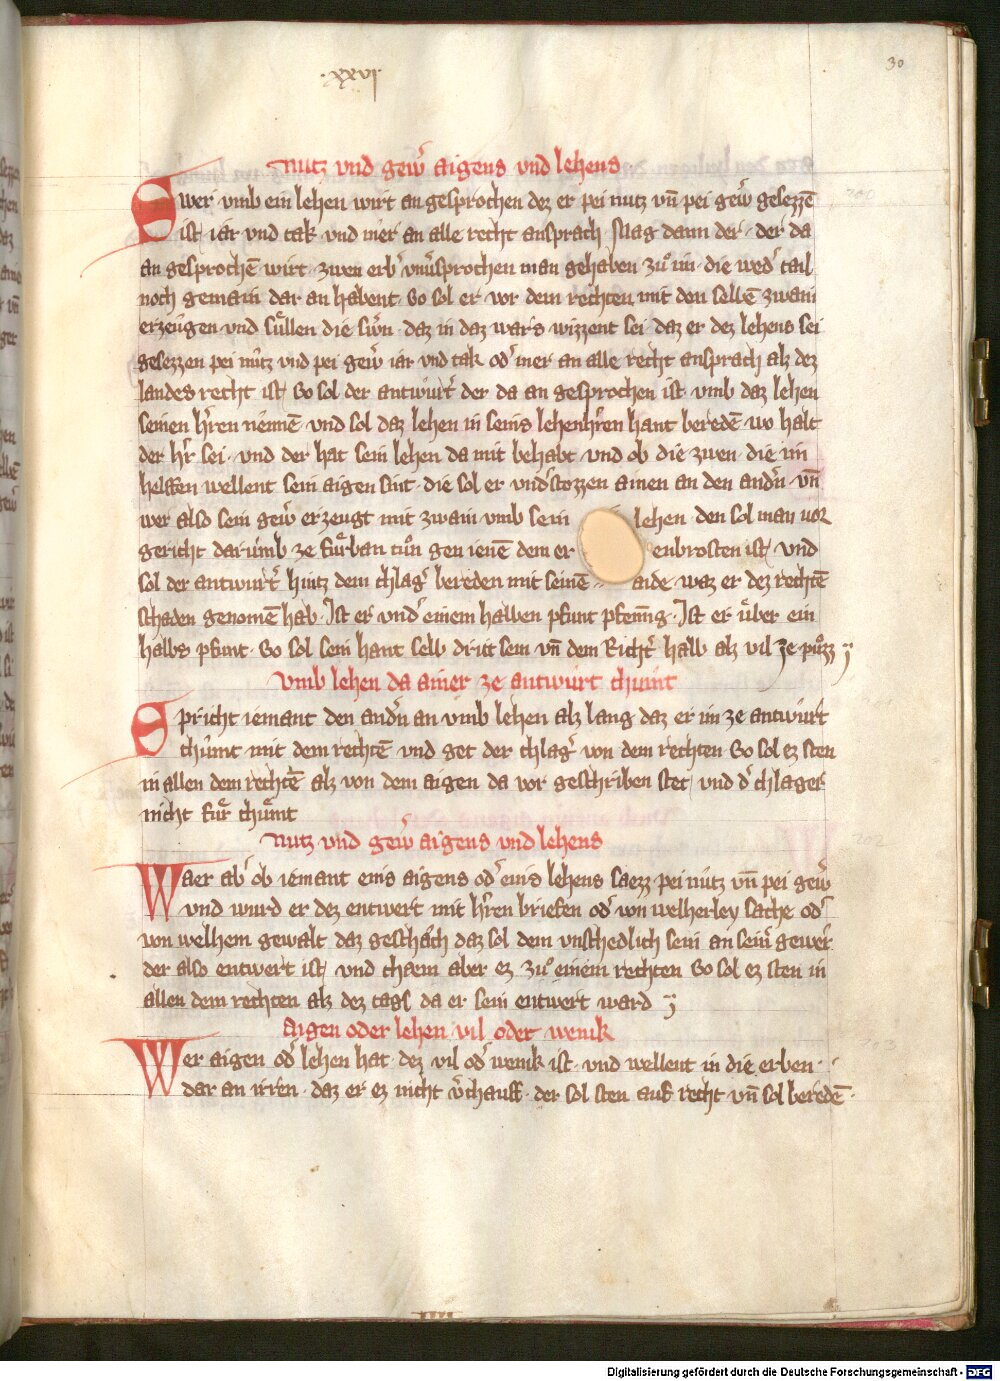 .xxvi.
30
Nutz vnd gew̓ aigens vnd lehens.
Swer vmb ein lehen wirt an gesprochen dez er pei nutz vn̄ pei gew̓ gesezzē
ist iar vnd tak vnd mer an alle recht ansprach Mag dann der der da
an gesprochē wirt zwen erb̓ vnu̓sprochen man gehaben zuͦ im die wed̓ tail
noch gemain dar an habent So sol er vor dem rechten mit den selbē zwain
erzeugen vnd suͤllen die sw̓n daz in daz wars wizzent sei daz er dez lehens sei
gesezzen pei nutz vnd pei gew̓ iar vnd tak od̓ mer an alle recht ansprach als dez
landes recht ist So sol der antwurt̓ der da an gesprochen ist vmb daz lehen
seinen h̓ren nennē vnd sol daz lehen in seins lehenh̓ren hant beredē wo halt
der h̓r sei vnd der hat sein lehen da mit behabt vnd ob die zwen die im
helffen wellent sein aigen sint die sol er vnd̓stozzen ainen an den and̓n vn̄
wer also sein gew̓ erzeugt mit zwain vmb sein lehen den sol man vor
gericht darumb ze fuͤrban tuͦn gen ienē dem er enbrosten ist vnd
sol der antwurt̓ hintz dem chlag̓ bereden mit seinē aide waz er dez rechtē
schaden genomē hab Ist er vnd̓ einem halben pfunt pfenn̄g Ist er uͤber ein
halbs pfunt So sol sein hant selb dritt sein vn̄ dem Richt̓ halb als vil ze puͦzz
Vmb lehen da ainer ze antwurt chumt
Spricht iemant den and̓n an vmb lehen als lang daz er im ze antwurt
chumt mit dem rechtē vnd get der chlag̓ von dem rechten So sol ez sten
in allen dem rechtē als von dem aigen da vor geschriben stet vnd d̓ chlager
nicht fuͤr chuͤmt
Nutz vnd gew̓ aigens vnd lehens
Waer ab̓ ob iemant eins aigens od̓ eins lehens saezz pei nutz vn̄ pei gew̓
vnd wurd er dez entwert mit h̓ren briefen od̓ von welherley sache od̓
von welhem gewalt daz geschaͤch daz sol dem vnschedlich sein an sein̓ gewer
der also entwert ist vnd chaem aber ez zuͦ einem rechten So sol ez sten in
allen dem rechten als dez tags da er sein entwert ward
Aigen oder lehen vil oder wenik
Wer aigen od̓ lehen hat dez vil od̓ wenik ist vnd wellent in die erben
dar an irren daz er ez nicht v̓chauff der sol sten auf recht vn̄ sol beredē
Digitalisierung gefördert durch die Deutsche Forschungsgemeinschaft - DFG